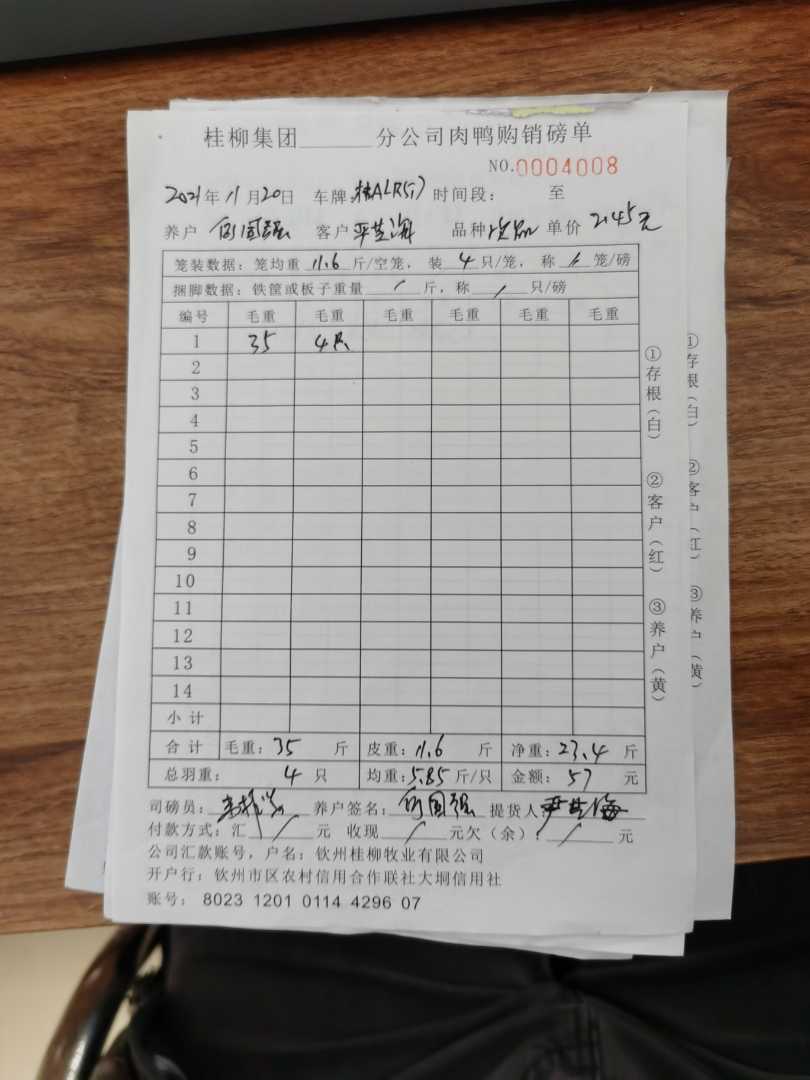 桂柳集团______分公司肉鸭购销磅单
NO.0004008
2021年11月20日 车牌: 时间段: 至
养户 何国强 客户 严世海 品种 单价 2.45元
笼装数据: 笼均重 11.6 斤/空笼, 装 4 只/笼, 称 / 笼/磅
捆脚数据: 铁筐或板子重量 / 斤, 称 / 只/磅
编号 毛重 毛重 毛重 毛重 毛重 毛重
1 35 4只
2
3
4
5
6
7
8
9
10
11
12
13
14
小计
合计 毛重: 35 斤 皮重: 11.6 斤 净重: 23.4 斤
总羽重: 4 只 均重: 5.85 斤/只 金额: 57 元
司磅员: 养户签名: 何国强 提货人: 严世海
付款方式: 汇 / 元 收现 / 元欠(余): / 元
公司汇款账号, 户名: 钦州桂柳牧业有限公司
开户行: 钦州市区农村信用合作联社大垌信用社
账号: 8023 1201 0114 4296 07
①存根(白) ②客户(红) ③养户(黄)
①存根(白) ②客户(红) ③养户(黄)